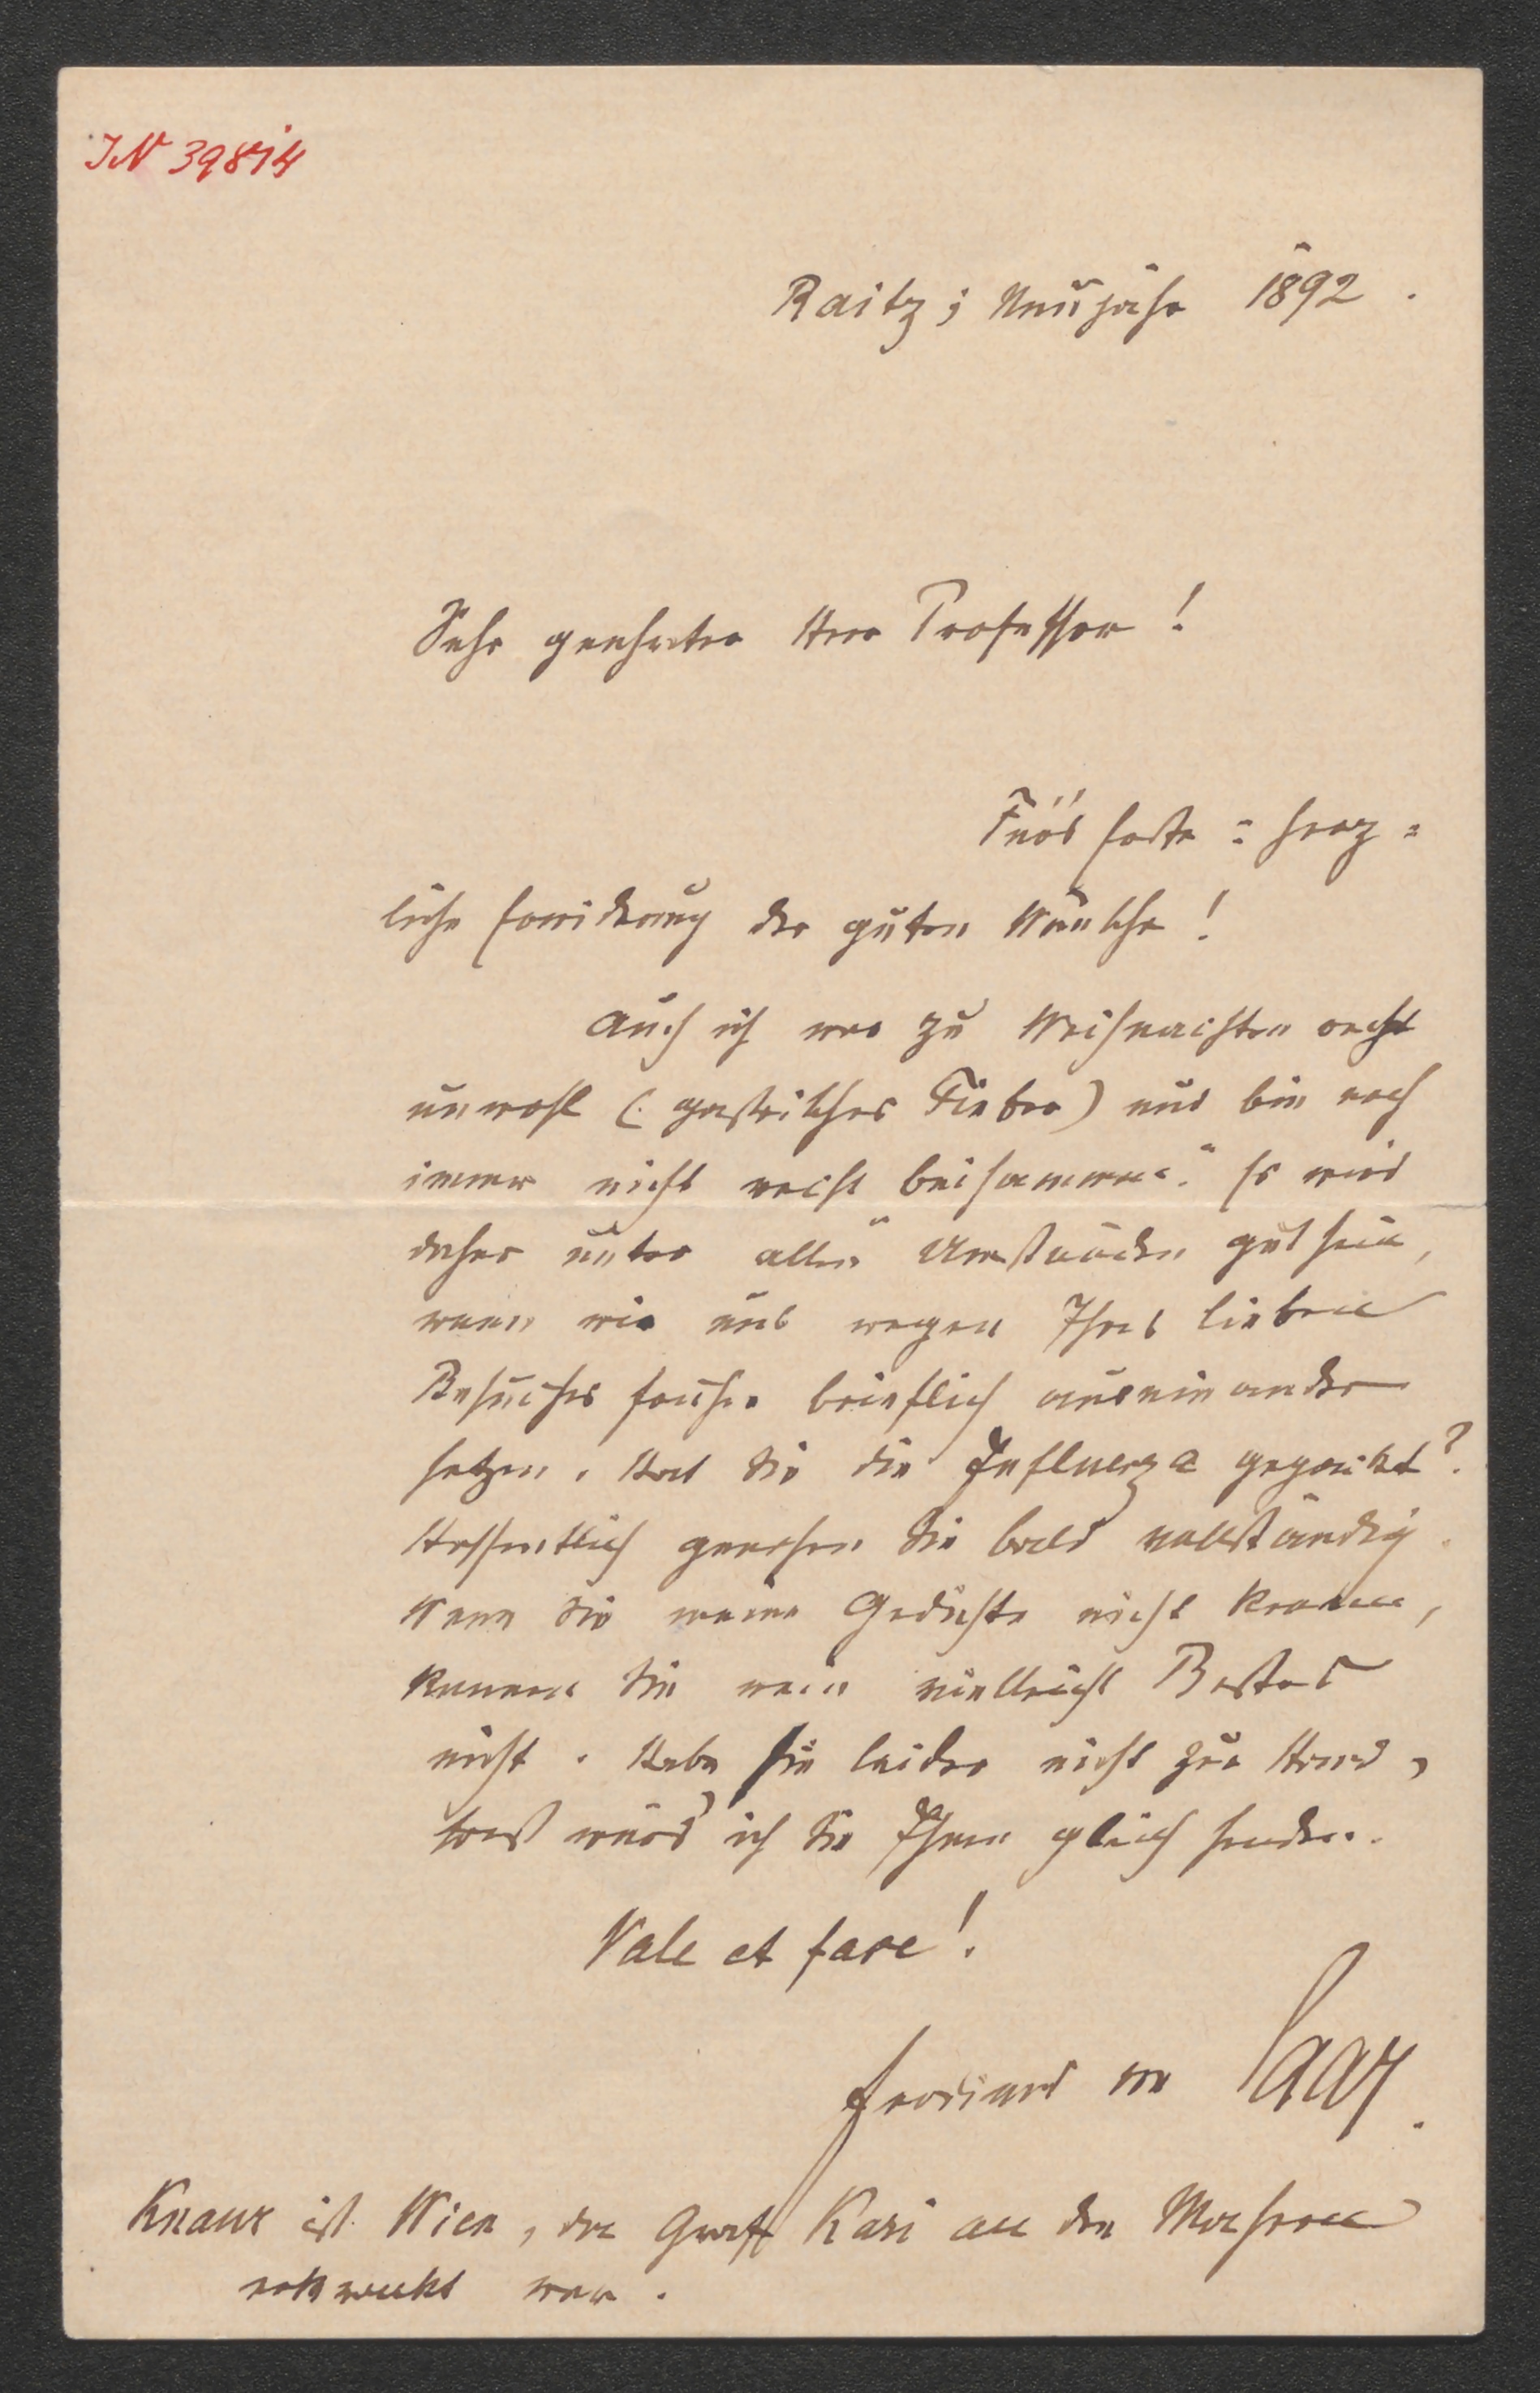 IN 39814
Raitz; Neujahr 1892.
Sehr geehrter Herr Professor!
Für's Erste: herz=
liche Erwiderung der guten Wünsche!
Auch ich war zu Weihnachten recht
unwohl (: gastrisches Fieber) und bin noch
immer nicht recht beisammen. Es wird
daher unter allen Umständen gut sein,
wenn wir uns wegen Ihres lieben
Besuches früher brieflich auseinander
setzen. Hat Sie die Influenza gepackt?
Hoffentlich genesen Sie bald vollständig.
Wenn Sie meine Gedichte nicht kennen,
kennen Sie mein vielleicht Bestes
nicht. Habe sie leider nicht zur Hand,
sonst würd' ich sie Ihnen gleich senden.
Vale et fave!
Ferdinand von Saar.
Knaur ist Wien, da Graf Kari an den Masern
erkrankt war.